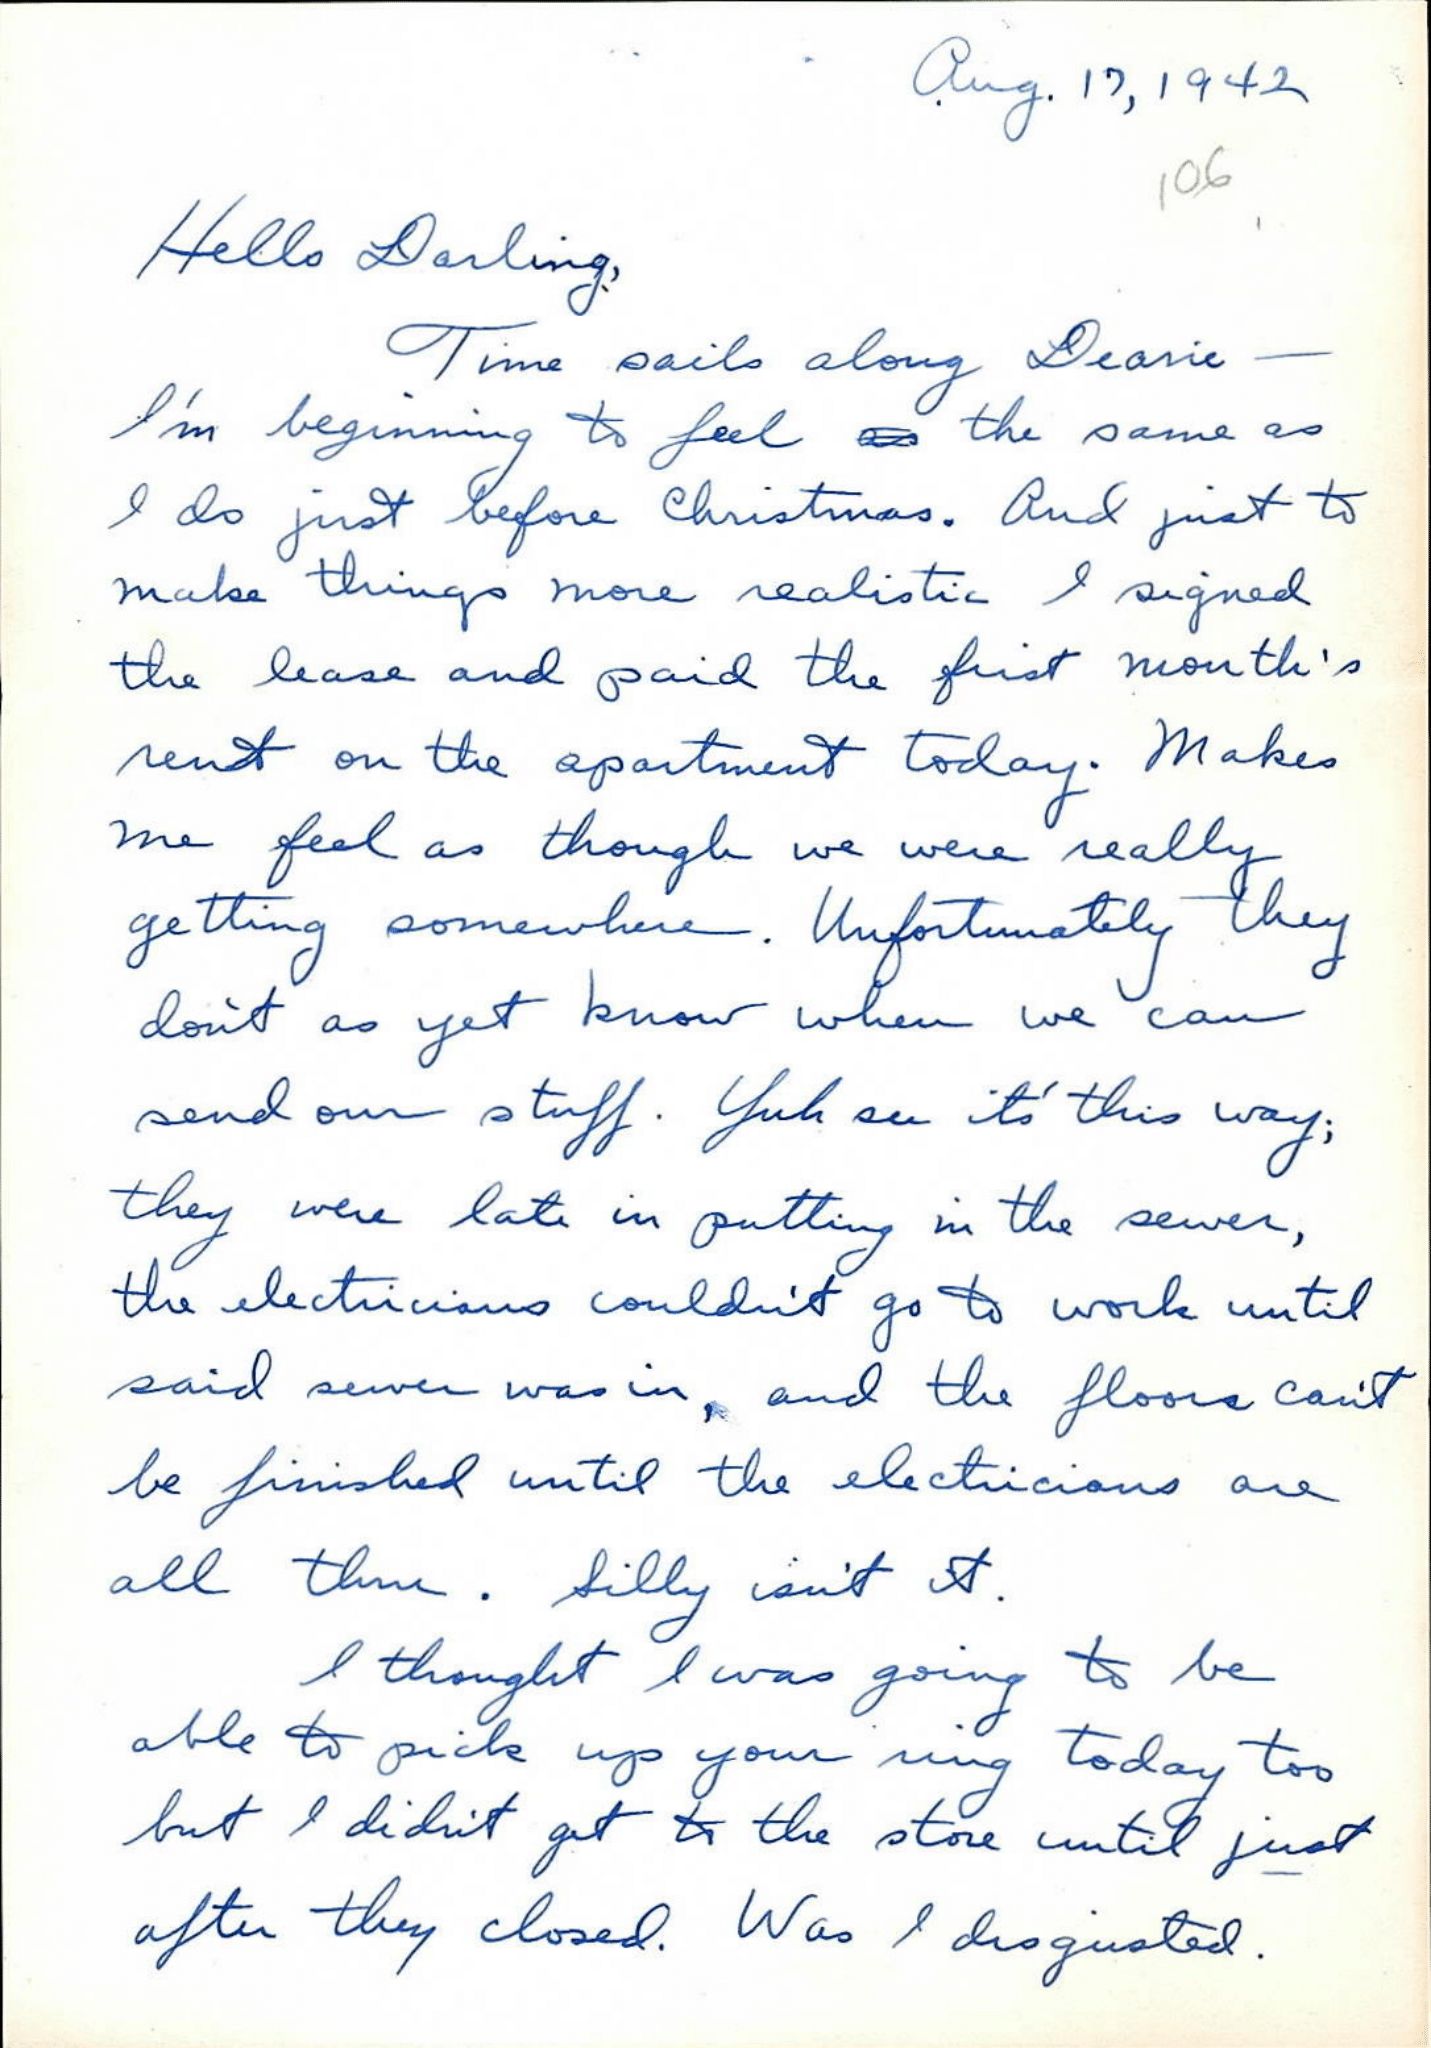 Aug. 17, 1942
106
Hello Darling,
Time sails along Dearie —
I'm beginning to feel as the same as
I do just before Christmas. And just to
make things more realistic I signed
the lease and paid the first month's
rent on the apartment today. Makes
me feel as though we were really
getting somewhere. Unfortunately they
don't as yet know when we can
send our stuff. Yuh see it's this way;
they were late in putting in the sewer,
the electricians couldn't go to work until
said sewer was in, and the floors can't
be finished until the electricians are
all thru. Silly isn't it.
I thought I was going to be
able to pick up your ring today too
but I didn't get to the store until just
after they closed. Was I disgusted.